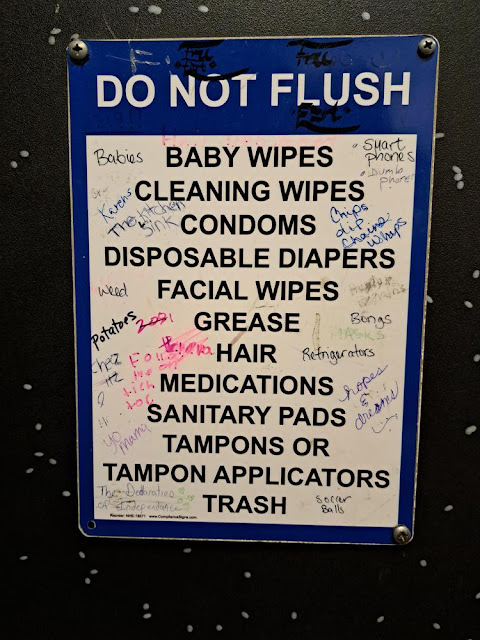 Free
DO NOT FLUSH
Babies BABY WIPES Smart phones
Dumb phones
Karens CLEANING WIPES
The Kitchen Sink CONDOMS Chips dip chains whips
DISPOSABLE DIAPERS
weed FACIAL WIPES
Potatoes 2021 GREASE Bongs
MASKS
HAIR Refrigerators
MEDICATIONS hopes & dreams
SANITARY PADS
yo mama TAMPONS OR
TAMPON APPLICATORS
The Declaration of Independence TRASH Soccer Balls
Reorder: NHE-18671 www.ComplianceSigns.com